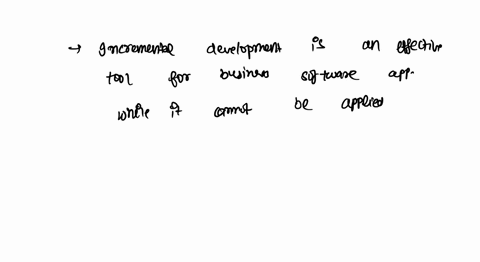 → Incremental development is an effective
tool for business software app.
while it cannot be applied